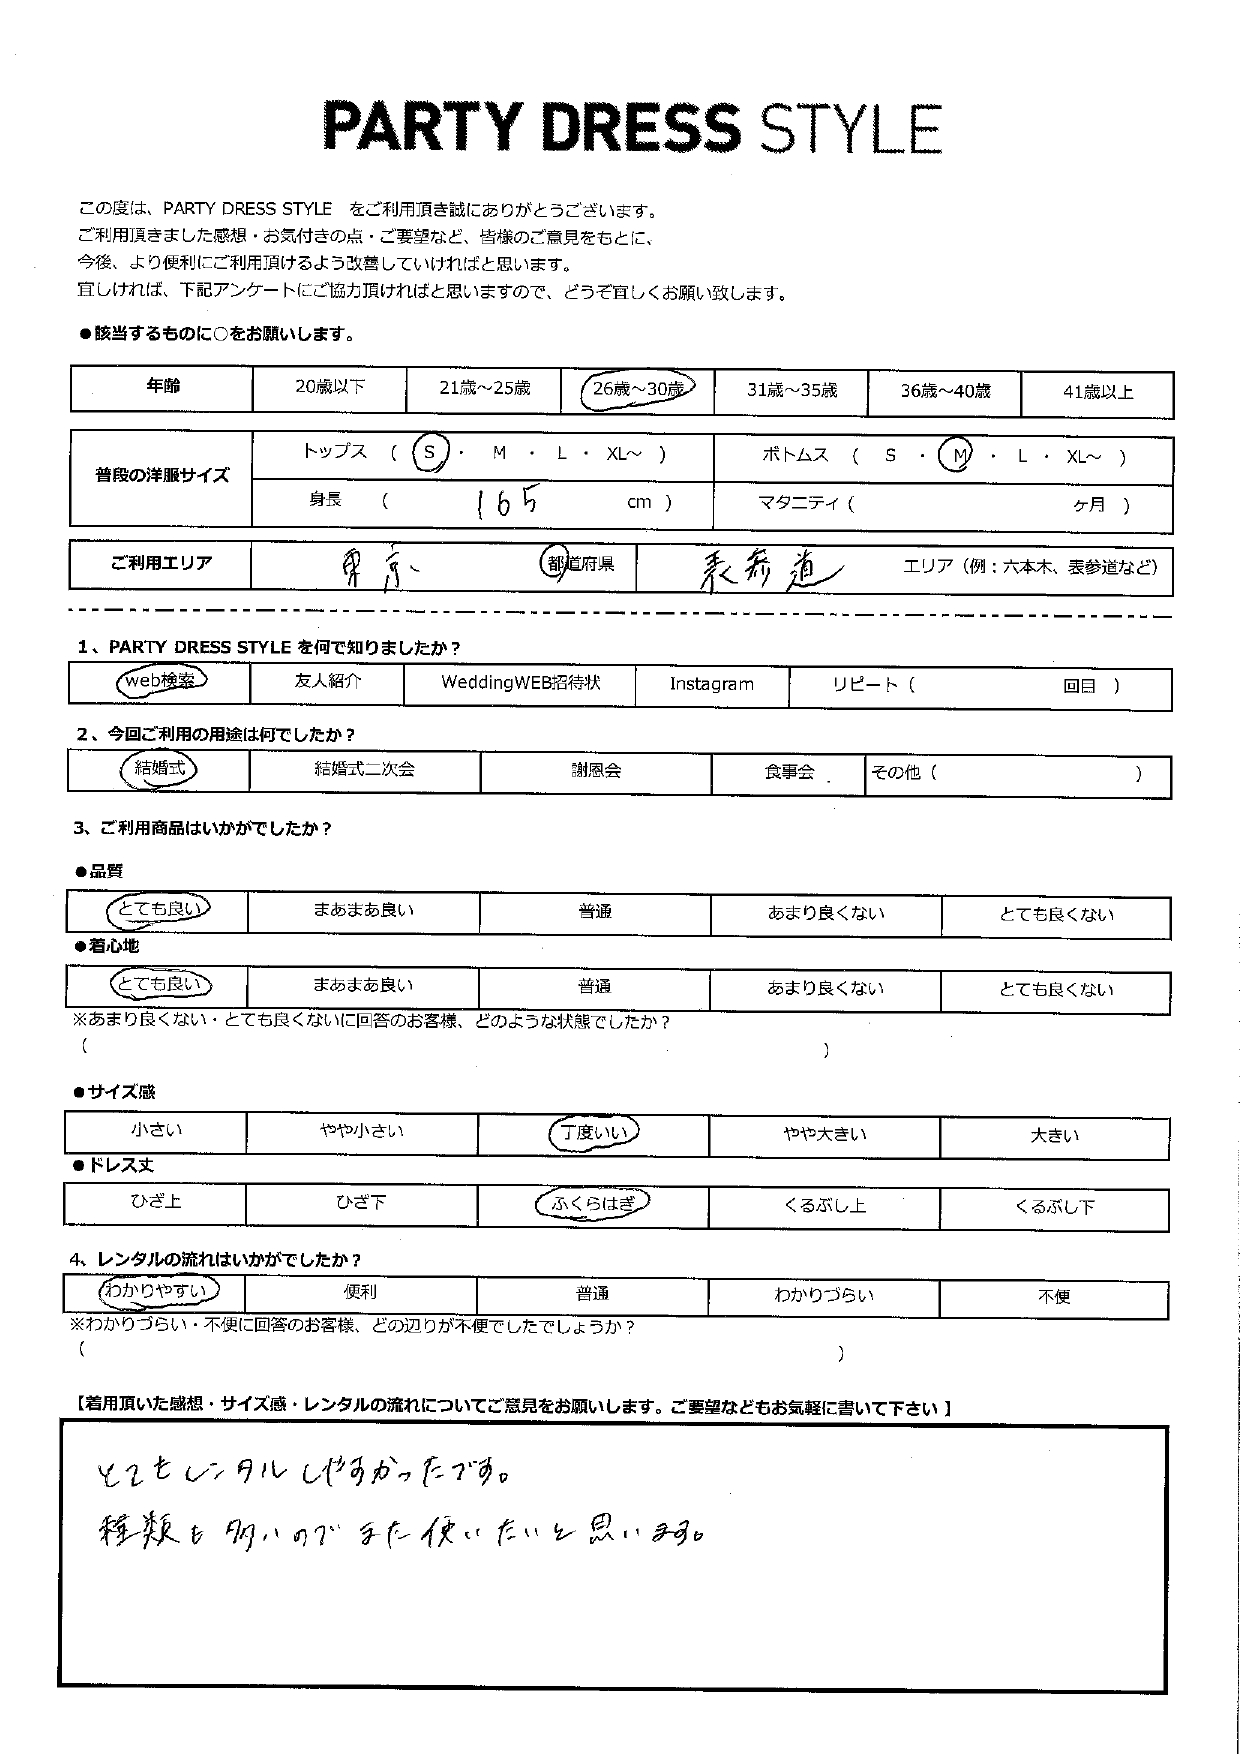 PARTY DRESS STYLE
この度は、PARTY DRESS STYLE をご利用頂き誠にありがとうございます。
ご利用頂きました感想・お気付きの点・ご要望など、皆様のご意見をもとに、
今後、より便利にご利用頂けるよう改善していければと思います。
宜しければ、下記アンケートにご協力頂ければと思いますので、どうぞ宜しくお願い致します。
●該当するものに○をお願いします。
年齢 20歳以下 21歳～25歳 26歳～30歳 31歳～35歳 36歳～40歳 41歳以上
普段の洋服サイズ トップス ( S ・ M ・ L ・ XL～ ) ボトムス ( S ・ M ・ L ・ XL～ )
身長 ( 165 cm ) マタニティ ( ヶ月 )
ご利用エリア 東京 都道府県 表参道 エリア（例：六本木、表参道など）
1、PARTY DRESS STYLE を何で知りましたか？
web検索 友人紹介 WeddingWEB招待状 Instagram リピート ( 回目 )
2、今回ご利用の用途は何でしたか？
結婚式 結婚式二次会 謝恩会 食事会 その他 ( )
3、ご利用商品はいかがでしたか？
●品質
とても良い まあまあ良い 普通 あまり良くない とても良くない
●着心地
とても良い まあまあ良い 普通 あまり良くない とても良くない
※あまり良くない・とても良くないに回答のお客様、どのような状態でしたか？
( )
●サイズ感
小さい やや小さい 丁度いい やや大きい 大きい
●ドレス丈
ひざ上 ひざ下 ふくらはぎ くるぶし上 くるぶし下
4、レンタルの流れはいかがでしたか？
わかりやすい 便利 普通 わかりづらい 不便
※わかりづらい・不便に回答のお客様、どの辺りが不便でしたでしょうか？
( )
【着用頂いた感想・サイズ感・レンタルの流れについてご意見をお願いします。ご要望などもお気軽に書いて下さい 】
とてもレンタルしやすかったです。
種類も多いのでまた使いたいと思います。